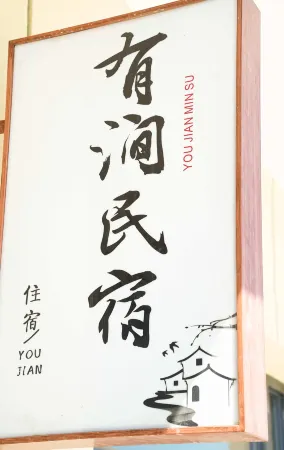 有涧民宿
YOU JIAN MIN SU
住宿/
YOU
JIAN